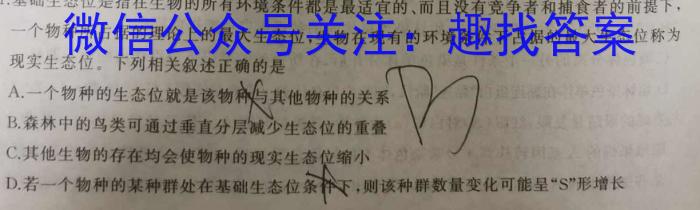 .基础生态位是指在生物的所有环境条件都是最适宜的、而且没有竞争者和捕食者的前提下,
一个物种所占据的理论上的最大生态位,生物在现有的环境条件下占据的最大生态位称为
微信公众号关注:趣找答案
现实生态位。下列相关叙述正确的是
A.一个物种的生态位就是该物种与其他物种的关系
B.森林中的鸟类可通过垂直分层减少生态位的重叠
C.其他生物的存在均会使物种的现实生态位缩小
D.若一个物种的某种群处在基础生态位条件下,则该种群数量变化可能呈“S”形增长
B